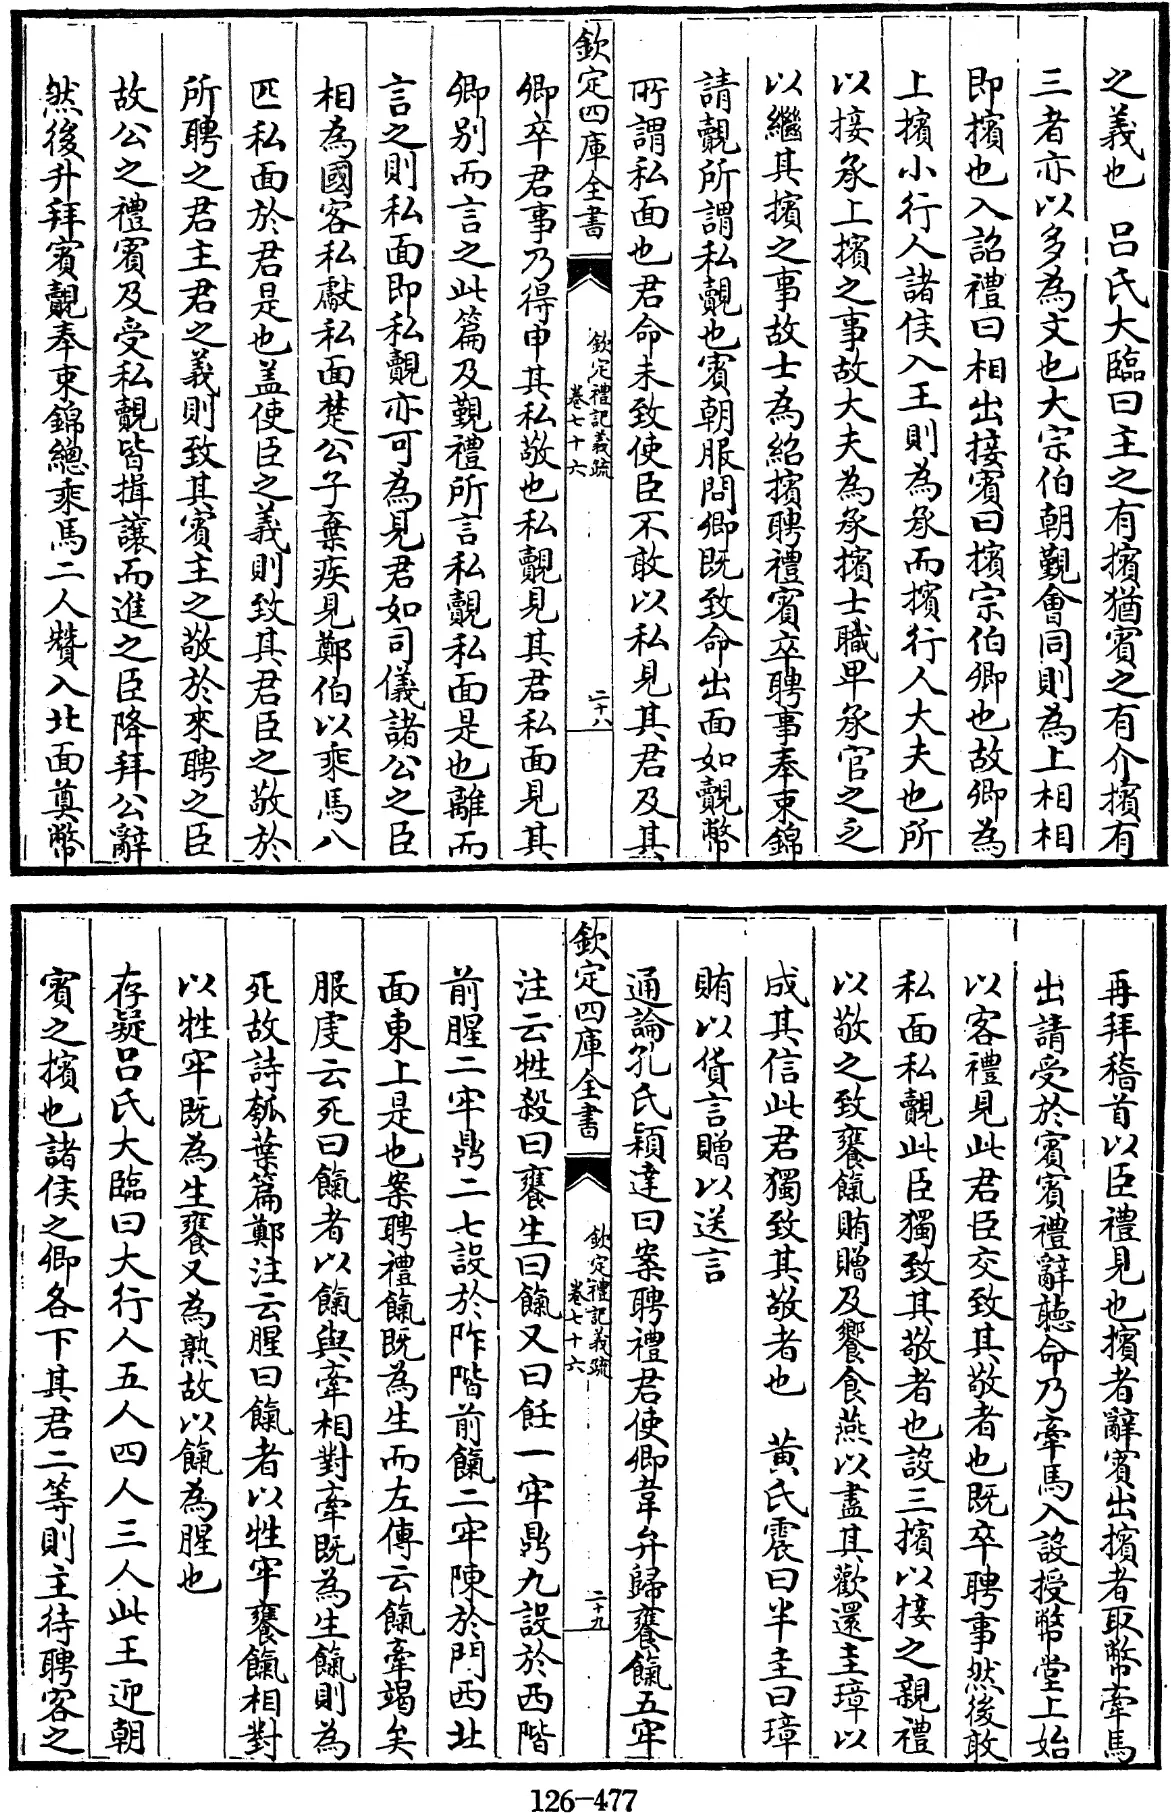 之義也　呂氏大臨曰主之有擯猶賓之有介擯有
三者亦以多為文也大宗伯朝覲會同則為上相相
即擯也入詔禮曰相出接賓曰擯宗伯卿也故卿為
上擯小行人諸侯入王則為承而擯行人大夫也所
以接承上擯之事故大夫為承擯士職卑承官之乏
以繼其擯之事故士為紹擯聘禮賓卒聘事奉束錦
請覿所謂私覿也賓朝服問卿既致命出面如覿幣
所謂私面也君命未致使臣不敢以私見其君及其
欽定四庫全書
欽定禮記義疏
卷七十六
二十八
卿卒君事乃得申其私敬也私覿見其君私面見其
卿别而言之此篇及覲禮所言私覿私面是也離而
言之則私面即私覿亦可為見君如司儀諸公之臣
相為國客私獻私面楚公子棄疾見鄭伯以乘馬八
匹私面於君是也盖使臣之義則致其君臣之敬於
所聘之君主君之義則致其賓主之敬於來聘之臣
故公之禮賓及受私覿皆揖讓而進之臣降拜公辭
然後升拜賓覿奉束錦總乘馬二人贊入北面奠幣
再拜稽首以臣禮見也擯者辭賓出擯者取幣牽馬
出請受於賓賓禮辭聽命乃牽馬入設授幣堂上始
以客禮見此君臣交致其敬者也既卒聘事然後敢
私面私覿此臣獨致其敬者也設三擯以接之親禮
以敬之致饔餼賄贈及饗食燕以盡其歡還圭璋以
成其信此君獨致其敬者也　黄氏震曰半圭曰璋
賄以貨言贈以送言
通論孔氏穎達曰案聘禮君使卿韋弁歸饔餼五牢
欽定四庫全書
欽定禮記義疏
卷七十六
二十九
注云牲殺曰饔生曰餼又曰飪一牢鼎九設於西階
前腥二牢鼎二七設於阼階前餼二牢陳於門西北
面東上是也案聘禮餼既為生而左傳云餼牽竭矣
服虔云死曰餼者以餼與牽相對牽既為生餼則為
死故詩瓠葉篇鄭注云腥曰餼者以牲牢饔餼相對
以牲牢既為生饔又為熟故以餼為腥也
存疑呂氏大臨曰大行人五人四人三人此王迎朝
賓之擯也諸侯之卿各下其君二等則主待聘客之
126-477